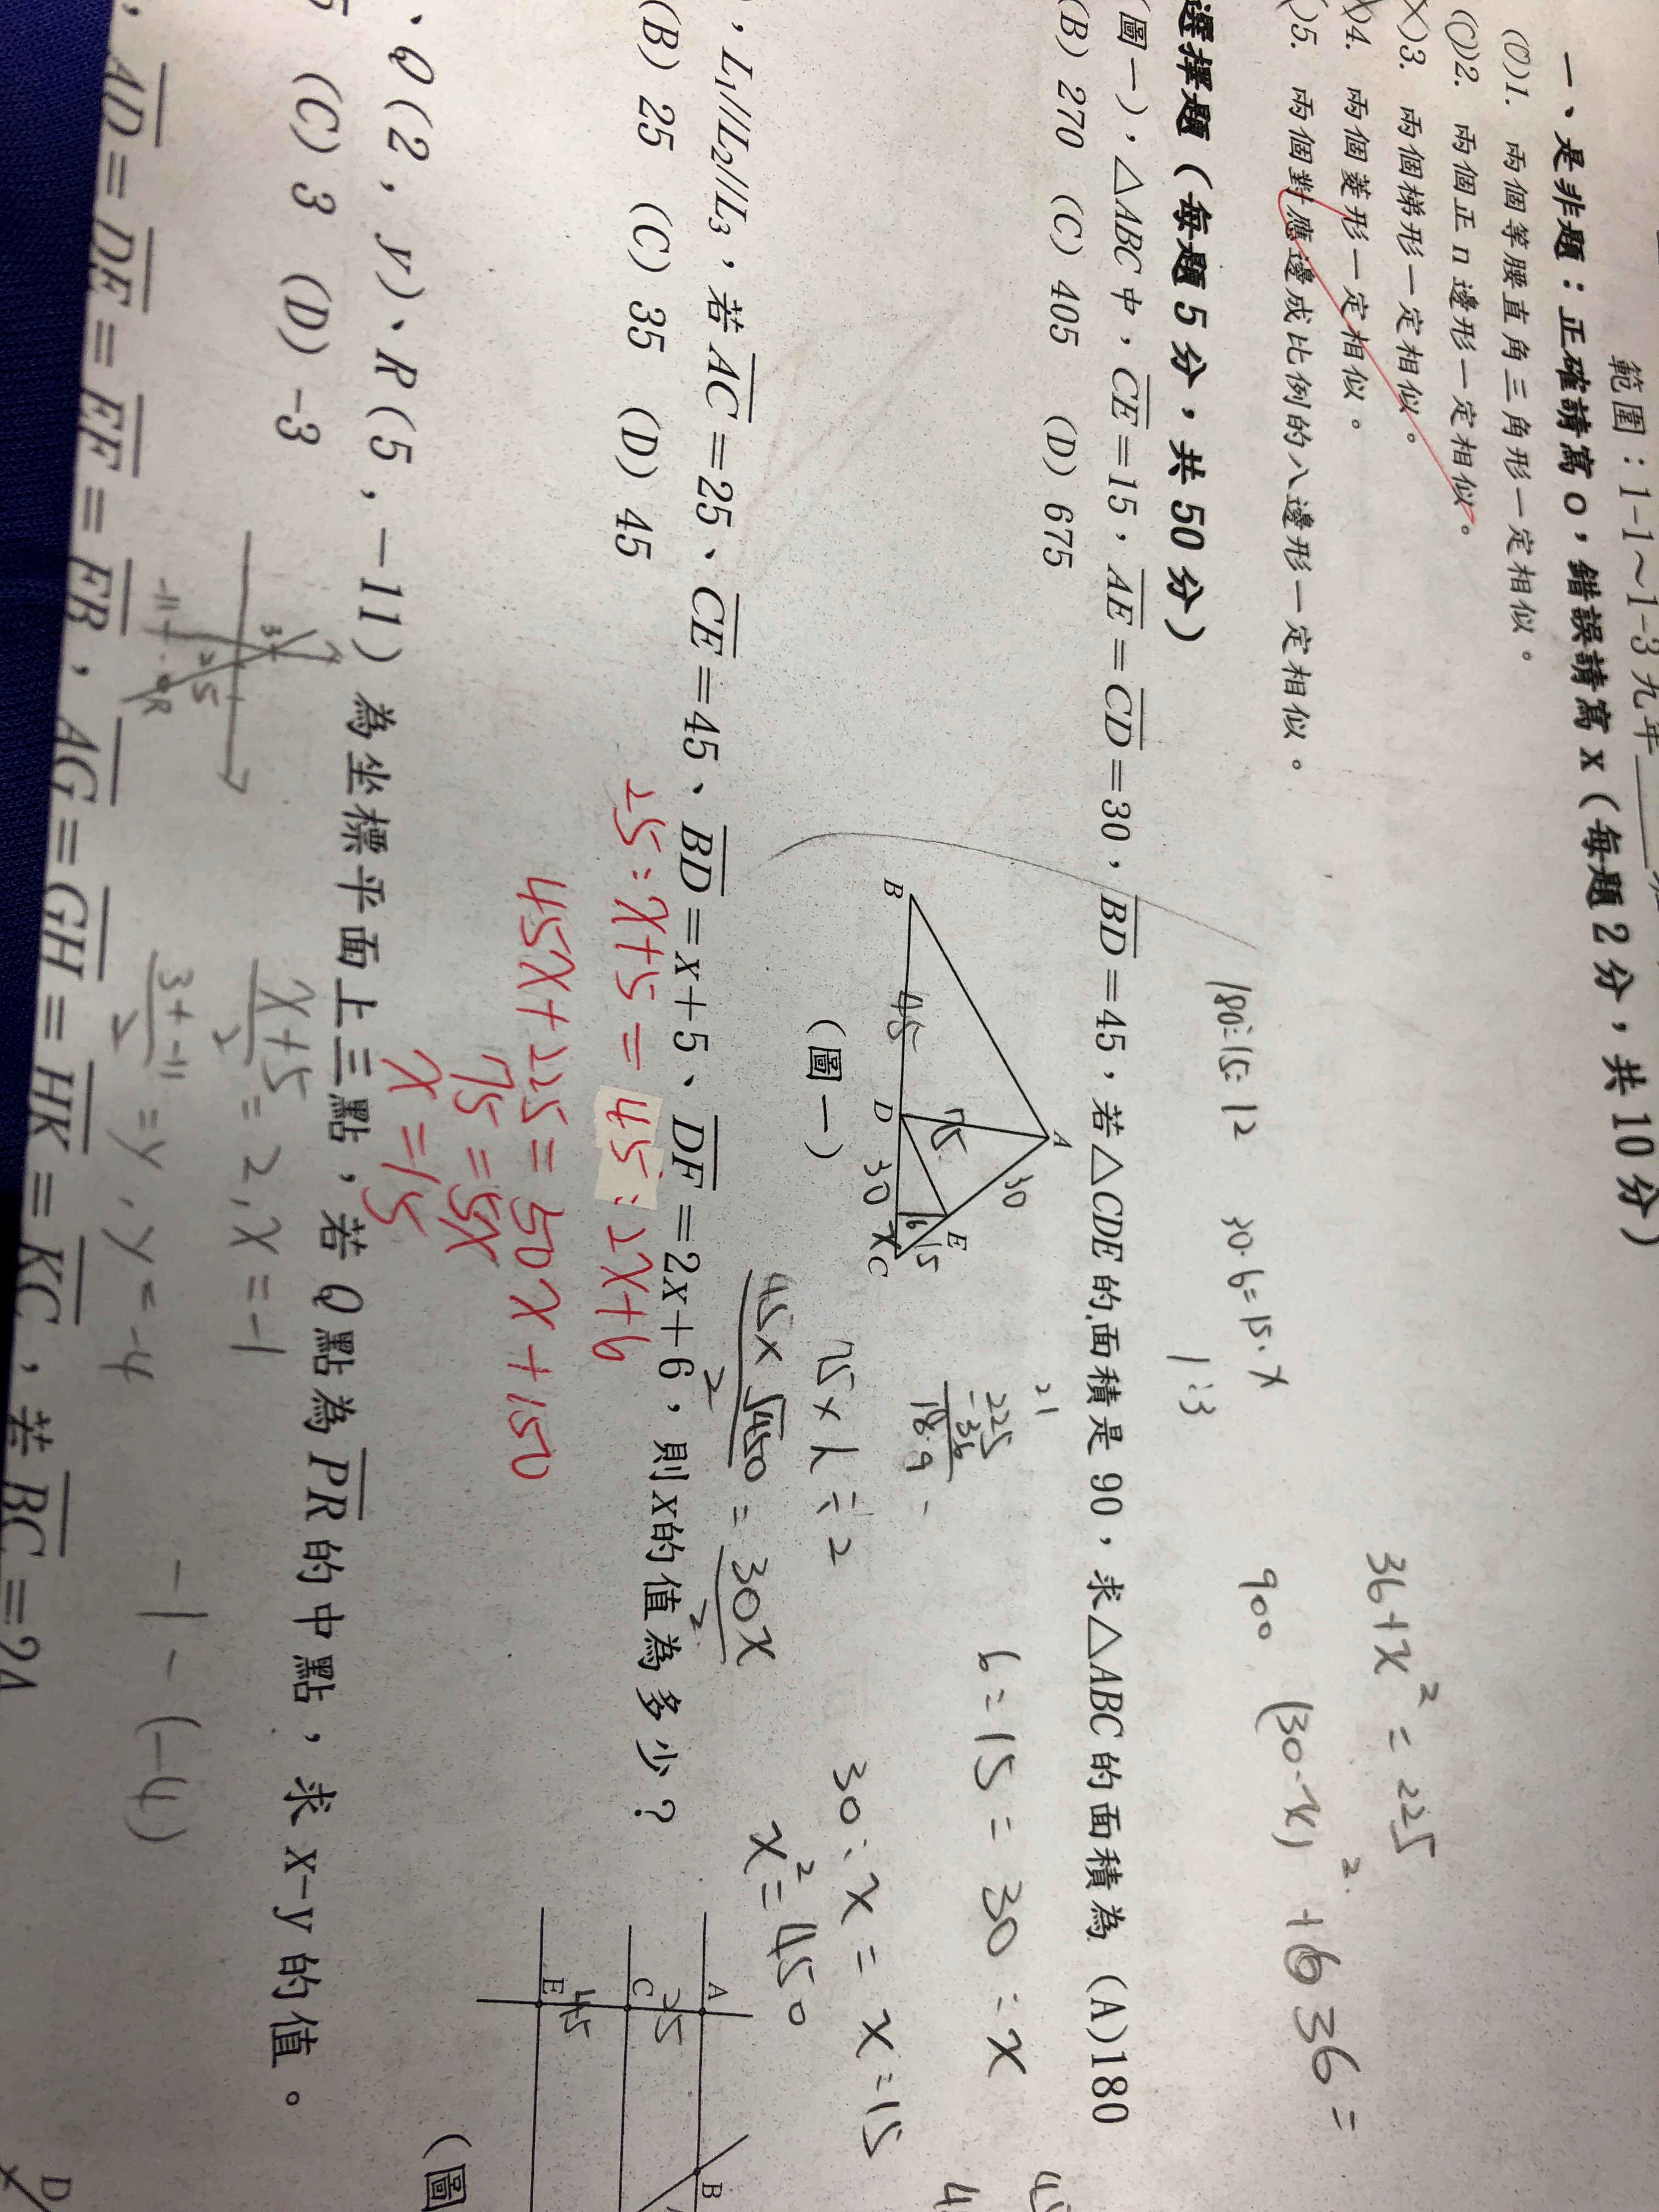 範圍：1-1～1-3九年
一、是非題：正確請寫o，錯誤請寫x（每題2分，共10分）
(O)1. 兩個等腰直角三角形一定相似。
(O)2. 兩個正n邊形一定相似。
X)3. 兩個梯形一定相似。
X)4. 兩個菱形一定相似。
)5. 兩個對應邊成比例的八邊形一定相似。
選擇題（每題5分，共50分）
圖一)，△ABC中，CE=15，AE=CD=30，BD=45，若△CDE的面積是90，求△ABC的面積為 (A)180
(B) 270 (C) 405 (D) 675
180÷15=12
30·6=15·x
1:3
36+x²=225
900 (30-x)²+36=
B
45
D
30
x
C
A
30
E
15
6
15
（圖一）
6=15=30=x
75×h÷2
30:x=x=15
x²=450
45×√450
2
=
30x
2
，L₁//L₂//L₃，若AC=25、CE=45、BD=x+5、DF=2x+6，則x的值為多少？
(B) 25 (C) 35 (D) 45
25:x+5=45:2x+6
45x+225=50x+150
75=5x
x=15
A
25
C
45
E
B
（圖
、Q(2，y)、R(5，-11)為坐標平面上三點，若Q點為PR的中點，求x-y的值。
(C) 3 (D) -3
3
2
5
-11
R
x+5
2
=2,x=-1
3+-11
2
=y,y=-4
-1-(-4)
，AD=DE=EF=FB，AG=GH=HK=KC，若BC=24
D